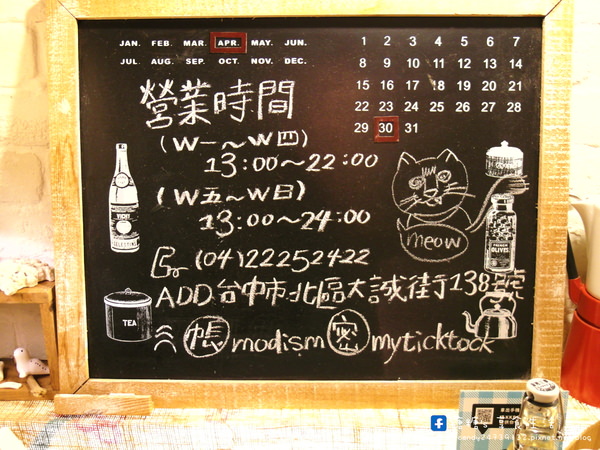 JAN. FEB. MAR. APR. MAY. JUN.
JUL. AUG. SEP. OCT. NOV. DEC.
1 2 3 4 5 6 7
8 9 10 11 12 13 14
15 16 17 18 19 20 21
22 23 24 25 26 27 28
29 30 31
營業時間
(W一~W四)
13:00~22:00
(W五~W日)
13:00~24:00
meow
(04)22252422
ADD.台中市北區大誠街138號
TEA
帳 modism 密 myticktock